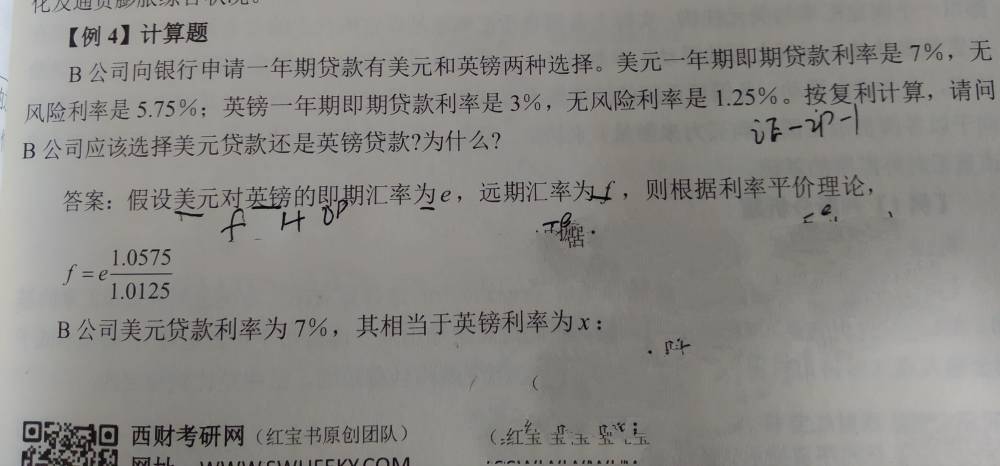 化及通货膨胀综合状况。
【例 4】计算题
B 公司向银行申请一年期贷款有美元和英镑两种选择。美元一年期即期贷款利率是 7%，无
风险利率是 5.75%；英镑一年期即期贷款利率是 3%，无风险利率是 1.25%。按复利计算，请问
B 公司应该选择美元贷款还是英镑贷款?为什么?
答案：假设美元对英镑的即期汇率为 e，远期汇率为 f，则根据利率平价理论，
f = e 1.0575/1.0125
B 公司美元贷款利率为 7%，其相当于英镑利率为 x：
西财考研网（红宝书原创团队）
网址 WWW.SWUFEKY.COM